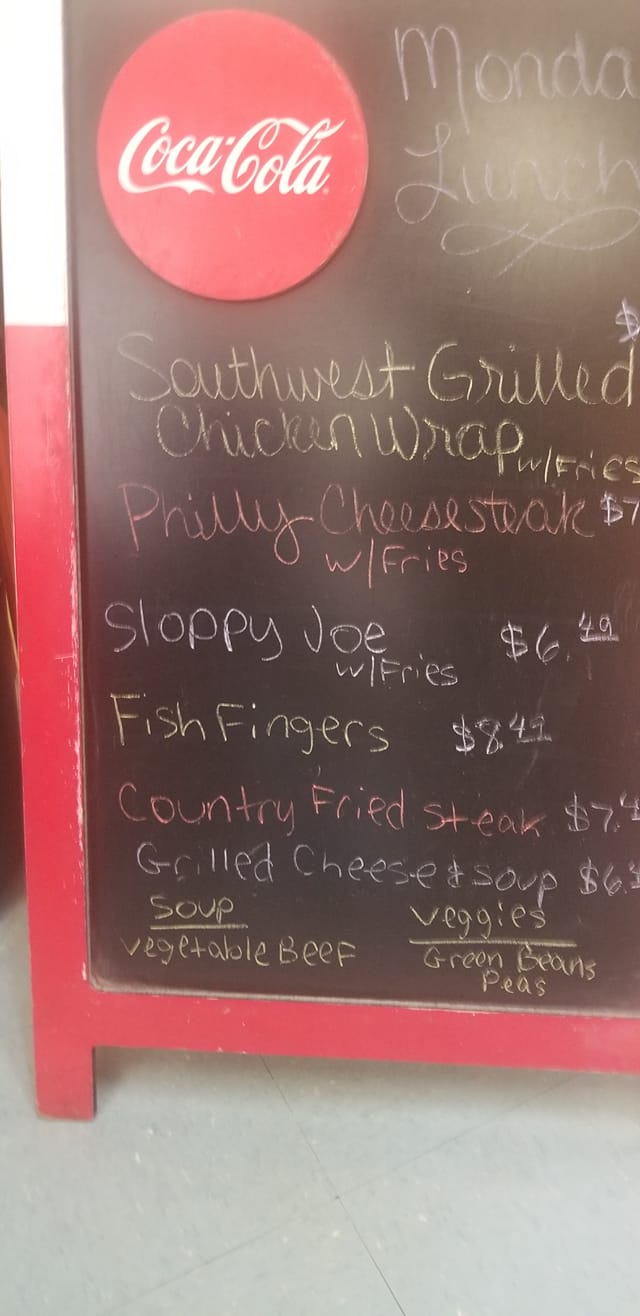 Coca-Cola
Monda
Lunch
$
Southwest Grilled
Chicken Wrap w/Fries
Philly Cheesesteak $7
w/Fries
Sloppy Joe $6.49
w/Fries
Fish Fingers $8.49
Country Fried Steak $7.4
Grilled Cheese & Soup $6.
Soup
Vegetable Beef
Veggies
Green Beans
Peas